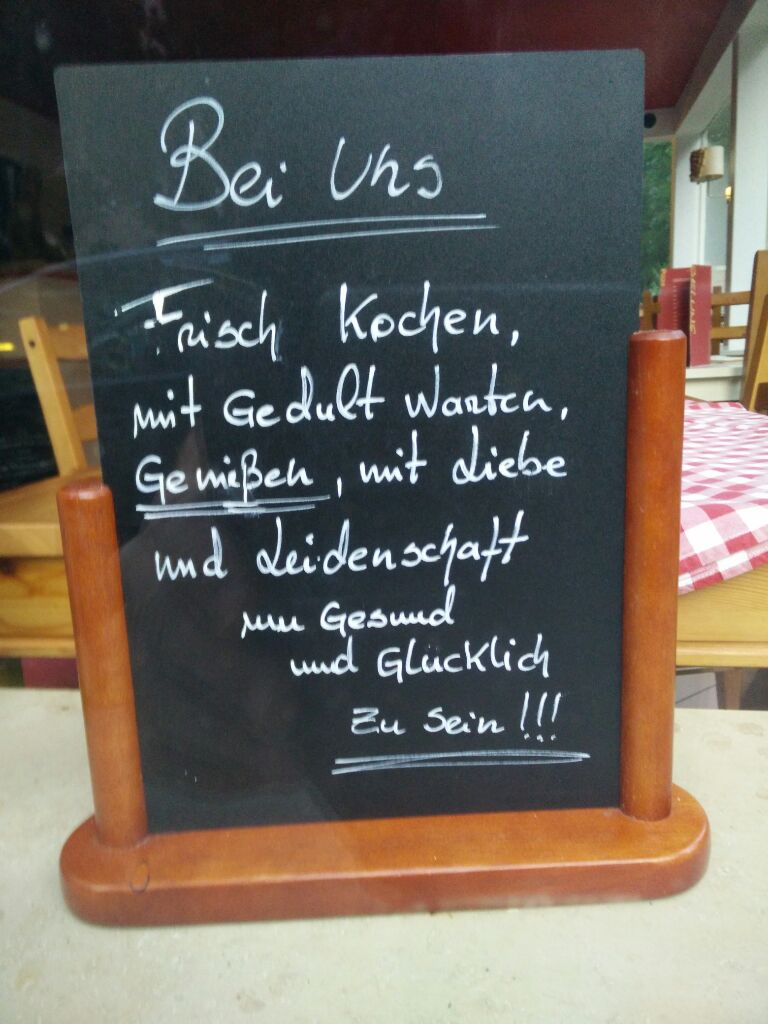 Bei Uns
Frisch Kochen,
mit Gedult Warten,
Genißen, mit Liebe
und Leidenschaft
um Gesund
und Glücklich
Zu sein!!!